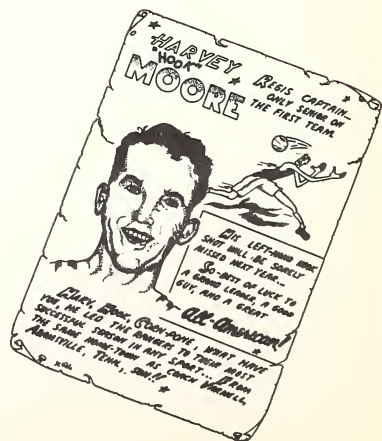 HARVEY
"HOOK"
MOORE
REGIS CAPTAIN...
ONLY SENIOR ON
THE FIRST TEAM.
HIS LEFT-HAND HOOK
SHOT WILL BE SORELY
MISSED NEXT YEAR...
SO-BEST OF LUCK TO
A GOOD LEADER, A GOOD
GUY, AND A GREAT
All-American!
HARV, HOOK, GOON-DOME, WHAT HAVE
YOU HE LED THE RANGERS TO THEIR MOST
SUCCESSFUL SEASON IN ANY SPORT... FROM
THE SAME HOME-TOWN AS COACH VARNELL,
TENN., SUH!!